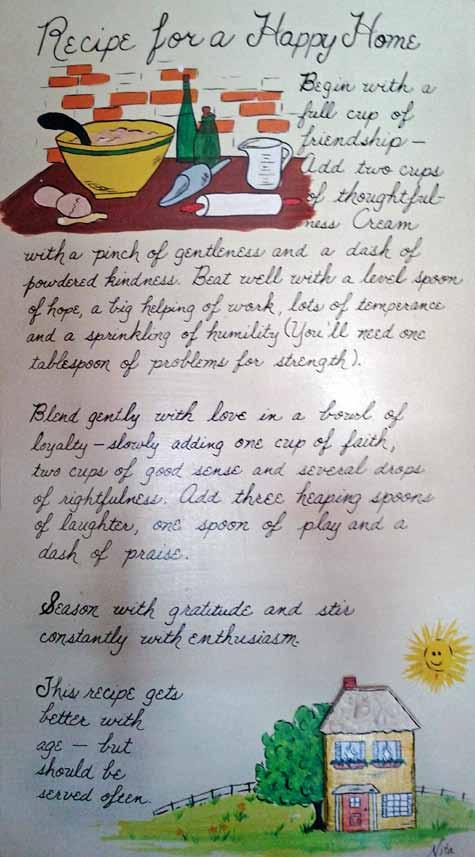 Recipe for a Happy Home
Begin with a
full cup of
friendship —
Add two cups
of thoughtful-
ness Cream
with a pinch of gentleness and a dash of
powdered kindness. Beat well with a level spoon
of hope, a big helping of work, lots of temperance
and a sprinkling of humility (You'll need one
tablespoon of problems for strength).
Blend gently with love in a bowl of
loyalty — slowly adding one cup of faith,
two cups of good sense and several drops
of rightfulness. Add three heaping spoons
of laughter, one spoon of play and a
dash of praise.
Season with gratitude and stir
constantly with enthusiasm.
This recipe gets
better with
age — but
should be
served often.